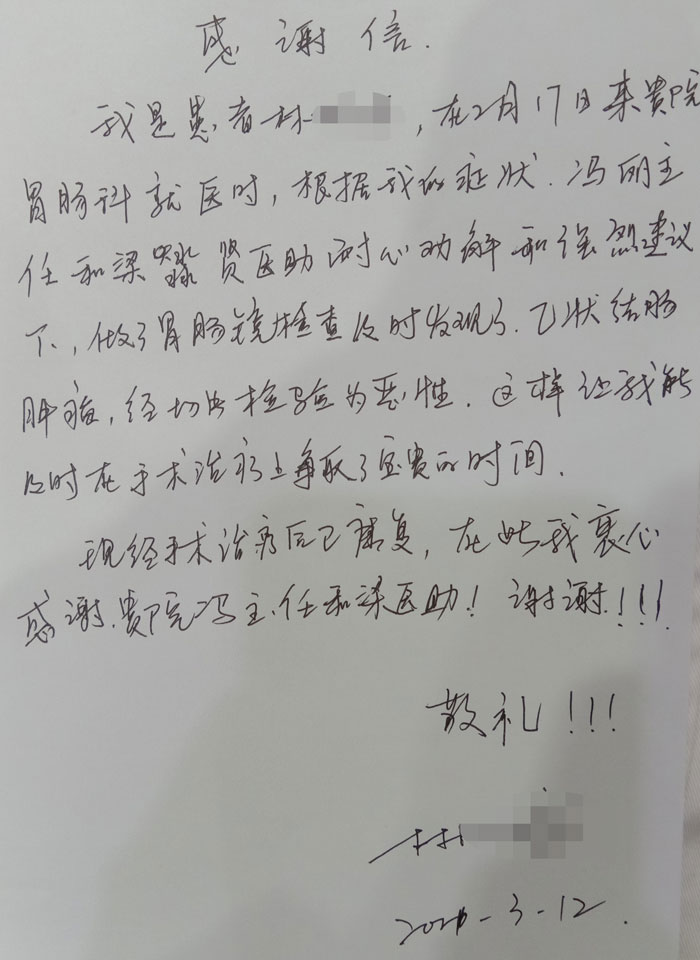 感谢信.
我是患者林，在2月17日来贵院
胃肠科就医时，根据我的症状.冯丽主
任和梁贤医助耐心劝解和强烈建议
下，做了胃肠镜检查及时发现了.乙状结肠
肿瘤，经切出检验为恶性.这样让我能
及时在手术治疗上争取了宝贵的时间.
现经手术治疗后已康复，在此我衷心
感谢.贵院冯主任和梁医助！谢谢！！！
敬礼！！！
林
-3-12.